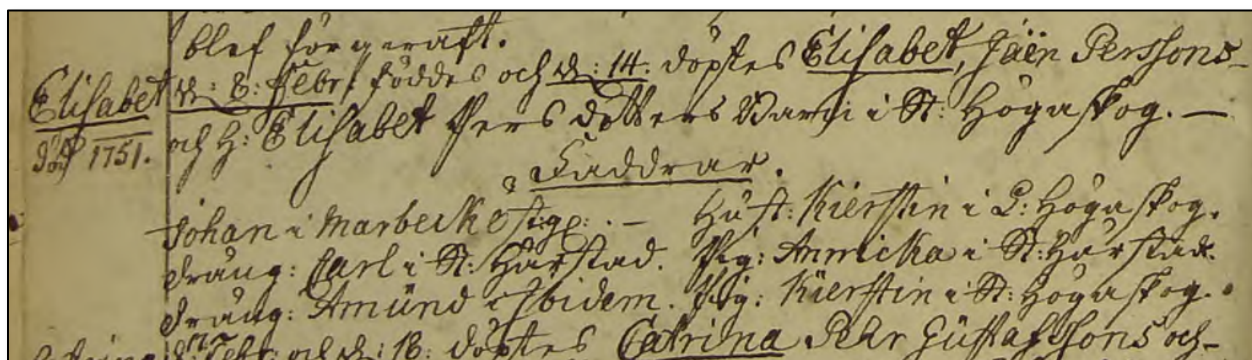 blef förgeraft.
Elisabet d: 8: Febr: föddes och d: 14: döptes Elisabet, Jäen Perssons
död 1751. och H: Elisabet Pers dotters Barn i St: Högaskog. —
Faddrar.
Johan i Marbecke — Hust: Kierstin i L: Högaskog.
Dräng: Carl i St: Hårstad. Pig: Annicka i St: Hårstad.
Dräng: Amünd i Ibidem. Pig: Kierstin i St: Högaskog.
Febr: och d: 18: döptes Catrina Pehr Güstafssons och